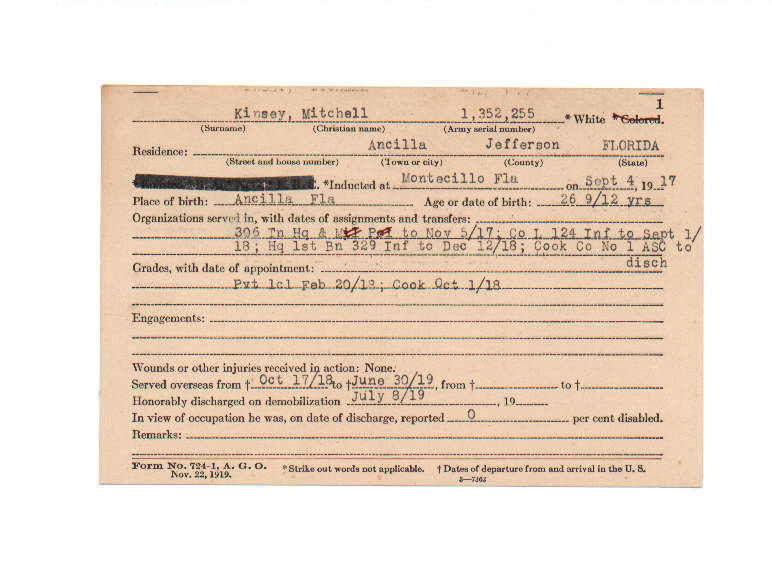 1
Kinsey, Mitchell 1,352,255 * White * Colored.
(Surname) (Christian name) (Army serial number)
Residence: Ancilla Jefferson FLORIDA
(Street and house number) (Town or city) (County) (State)
*Inducted at Montecillo Fla on Sept 4, 1917
Place of birth: Ancilla Fla Age or date of birth: 26 9/12 yrs
Organizations served in, with dates of assignments and transfers:
306 Tn Hq & to Nov 5/17; Co L 124 Inf to Sept 1/
18; Hq 1st Bn 329 Inf to Dec 12/18; Cook Co No 1 ASC to
disch
Grades, with date of appointment:
Pvt 1cl Feb 20/18; Cook Oct 1/18
Engagements:
Wounds or other injuries received in action: None.
Served overseas from † Oct 17/18 to † June 30/19, from † to †
Honorably discharged on demobilization July 8/19, 19
In view of occupation he was, on date of discharge, reported 0 per cent disabled.
Remarks:
Form No. 724-1, A. G. O. * Strike out words not applicable. † Dates of departure from and arrival in the U. S.
Nov. 22, 1919. 3—7363